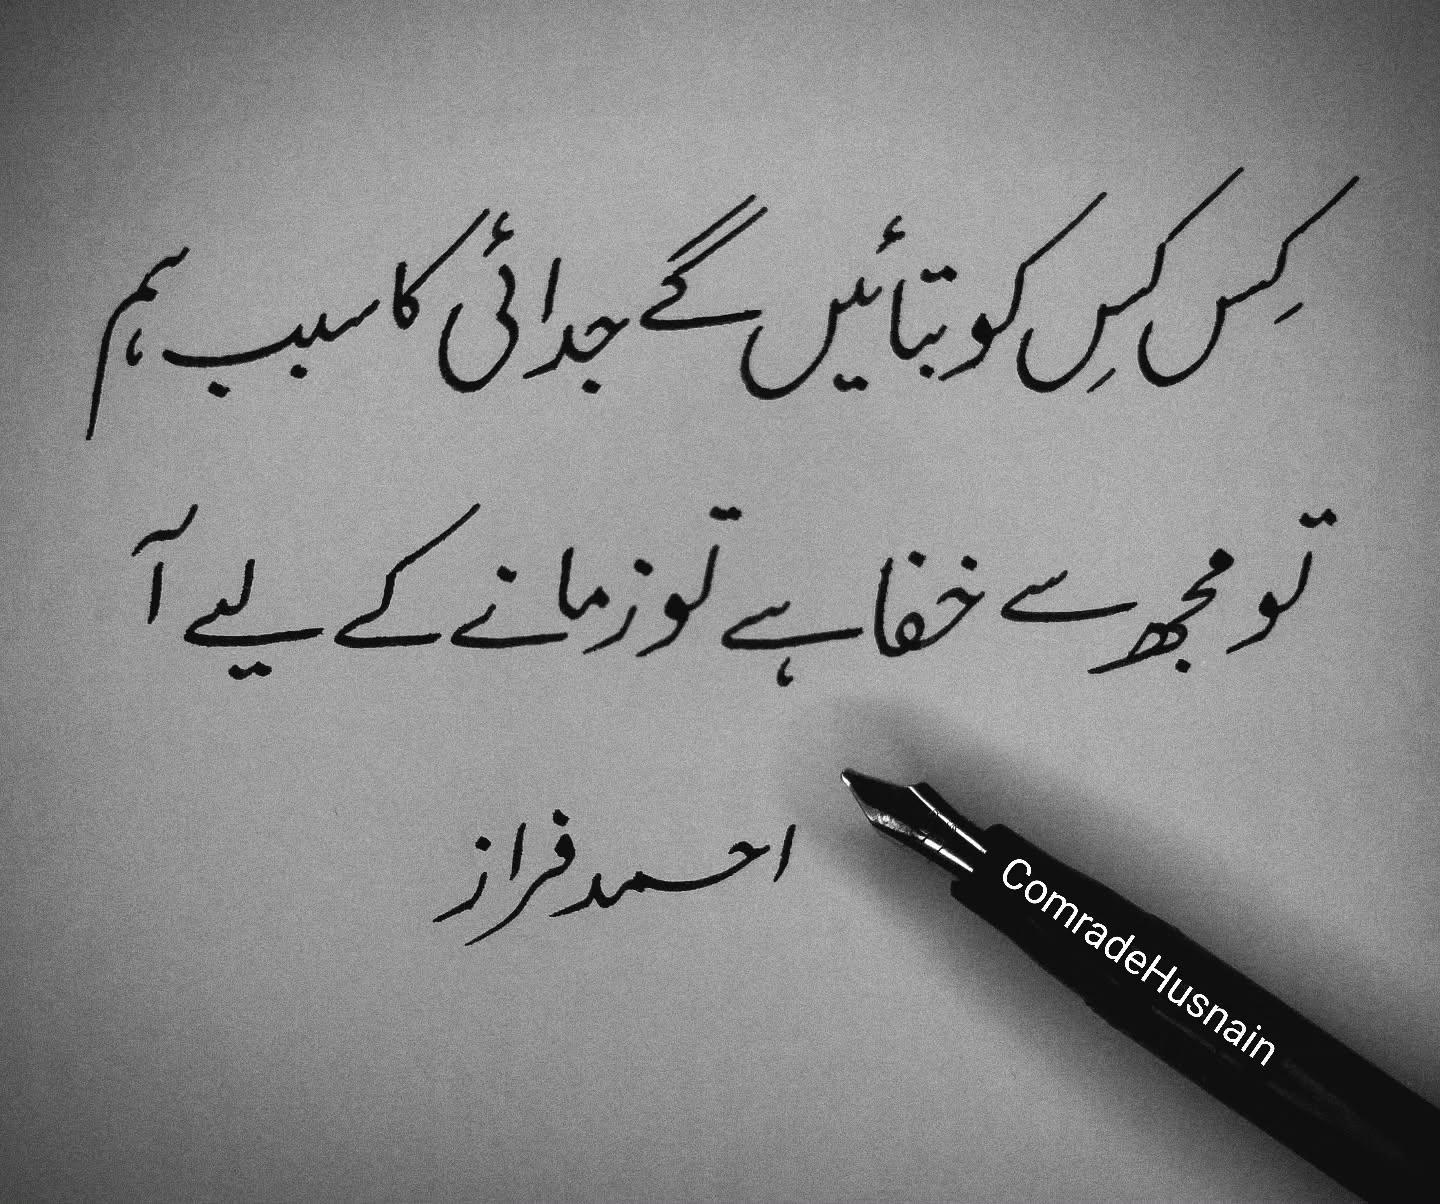 کِس کِس کو بتائیں گے جدائی کا سبب ہم
تو مجھ سے خفا ہے تو زمانے کے لیے آ
احمد فراز
ComradeHusnain